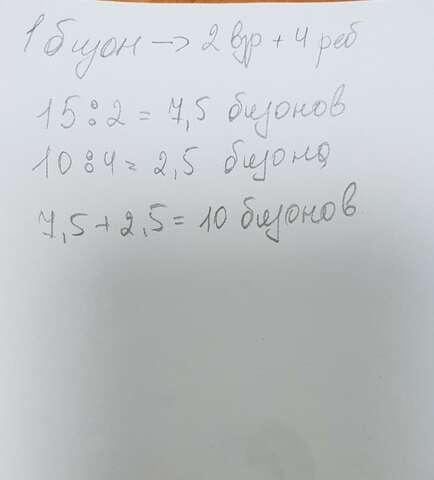 1 бизон → 2 взр + 4 реб
15 : 2 = 7,5 бизонов
10 : 4 = 2,5 бизона
7,5 + 2,5 = 10 бизонов